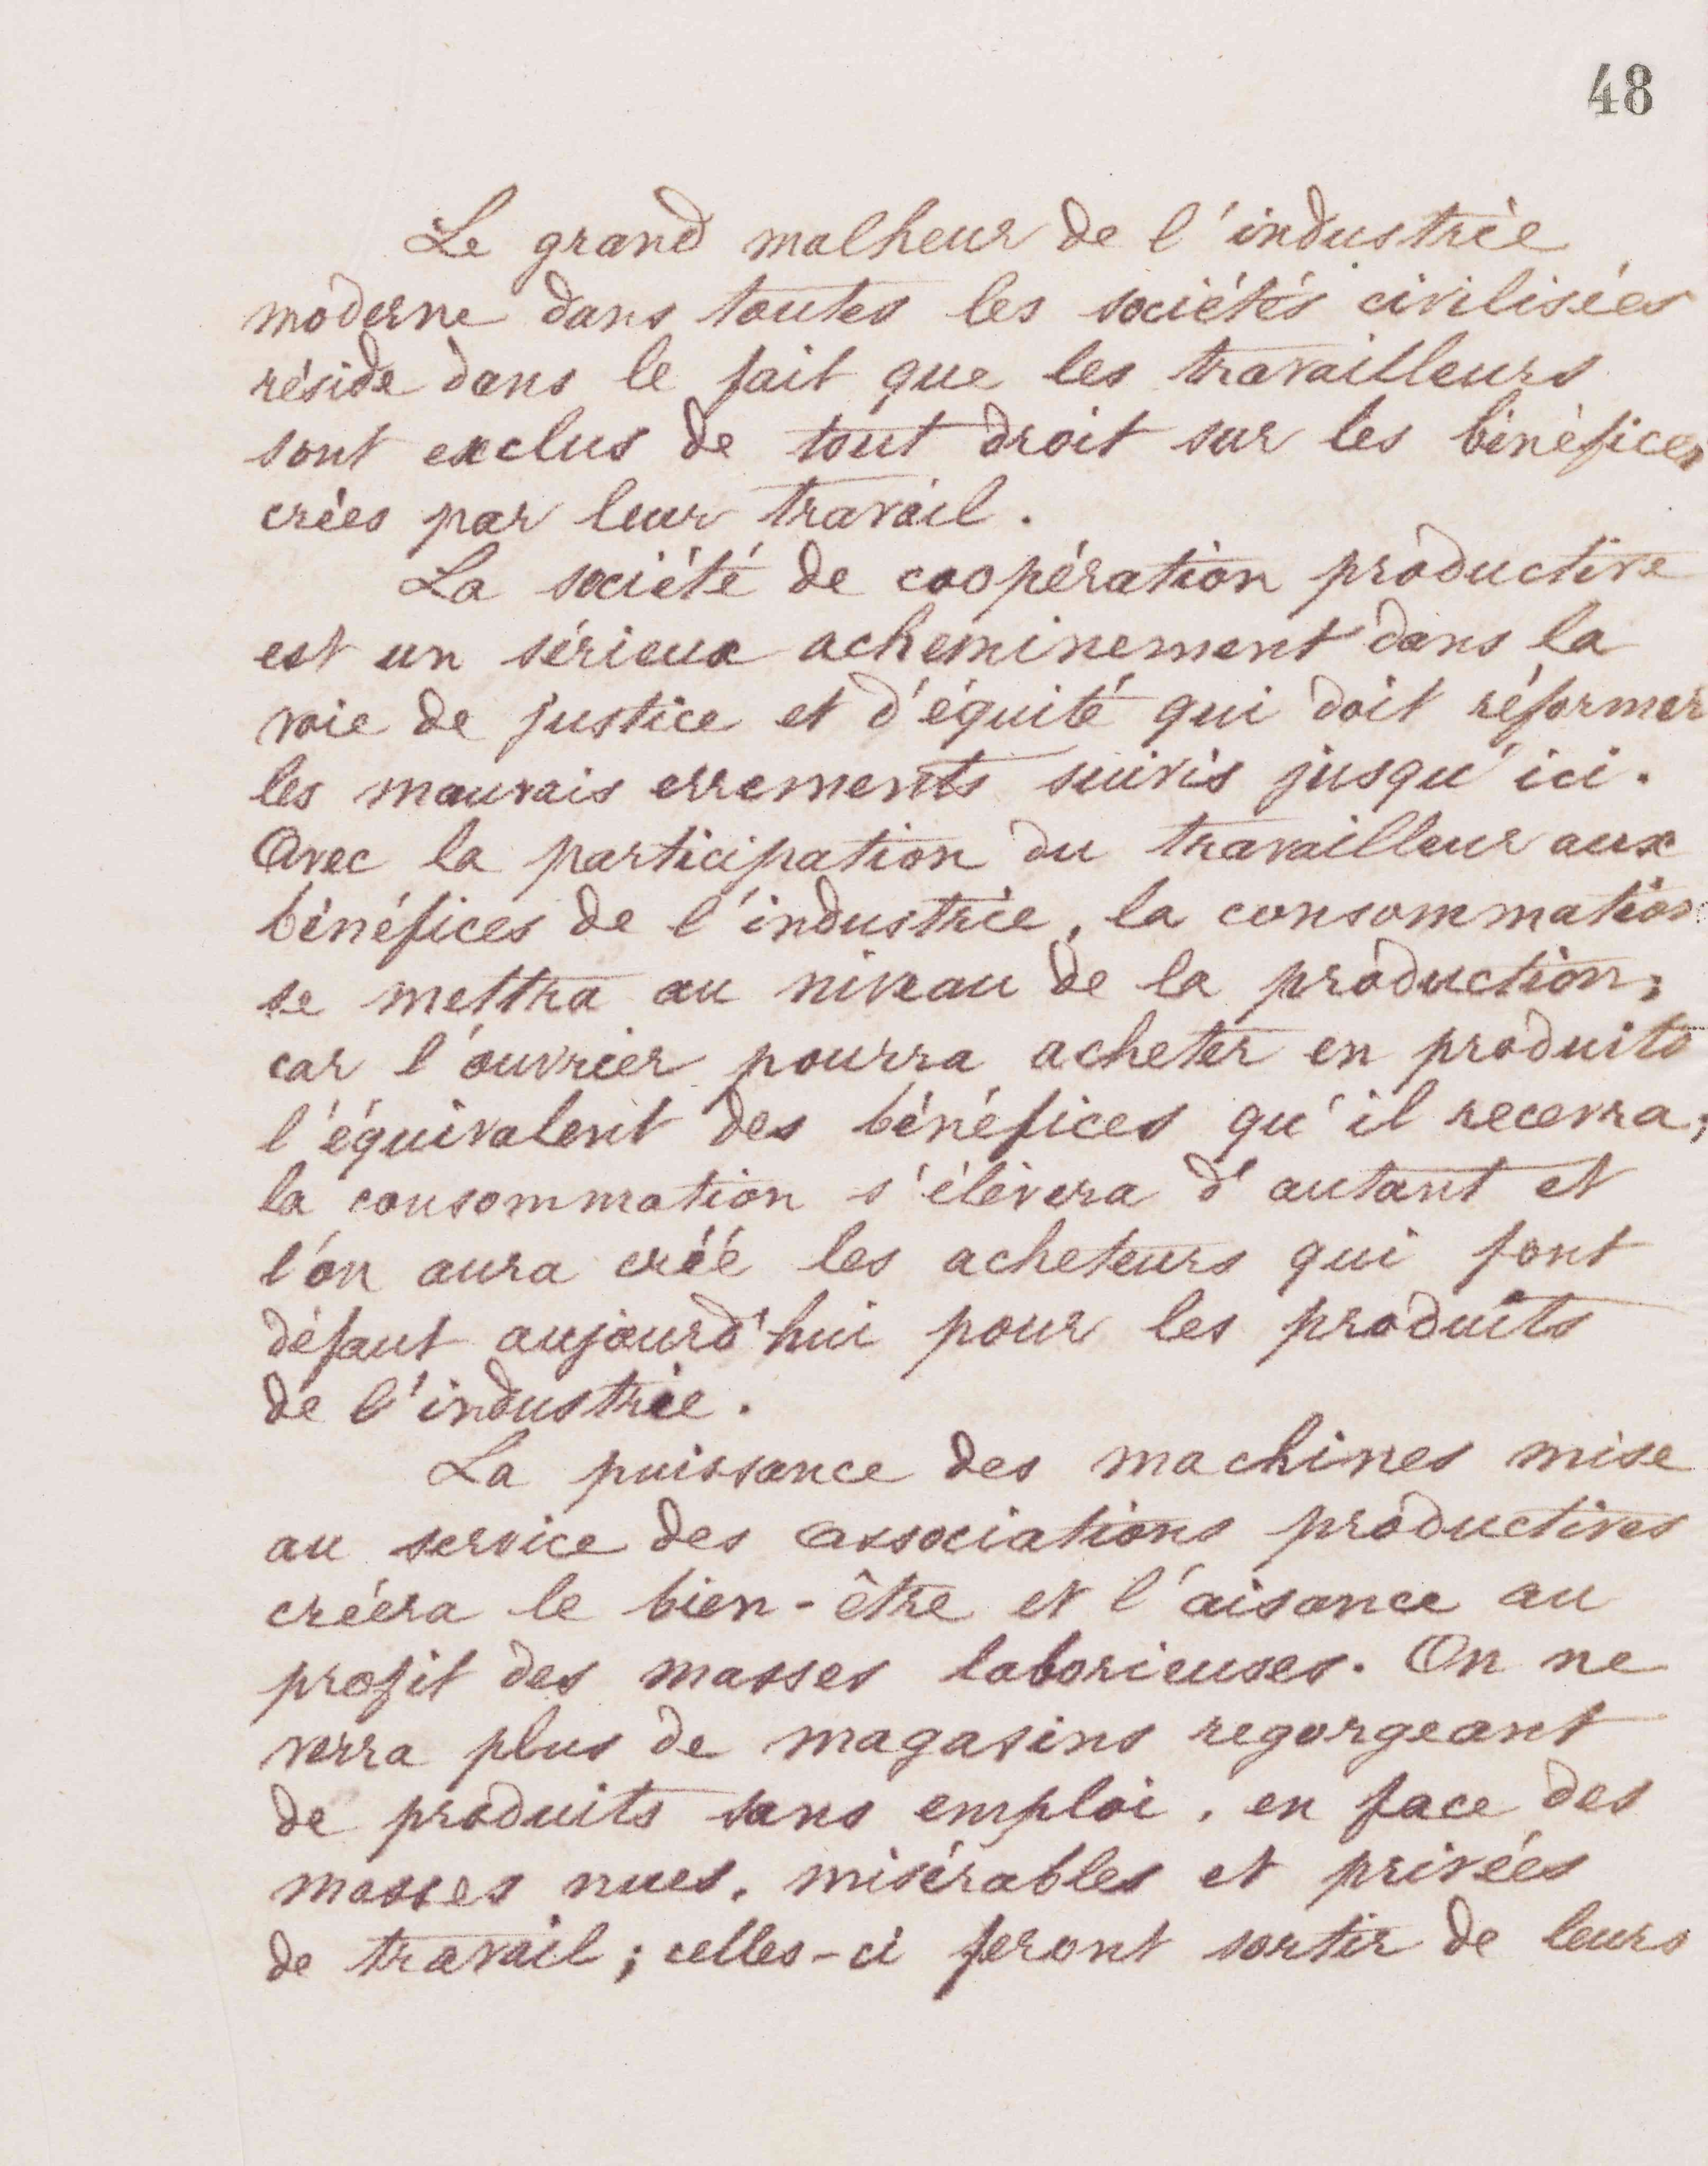 48
Le grand malheur de l'industrie
moderne dans toutes les sociétés civilisées
réside dans le fait que les travailleurs
sont exclus de tout droit sur les bénéfices
créés par leur travail.
La société de coopération productive
est un sérieux acheminement dans la
voie de justice et d'équité qui doit réformer
les mauvais errements suivis jusqu'ici.
Avec la participation du travailleur aux
bénéfices de l'industrie, la consommation
se mettra au niveau de la production;
car l'ouvrier pourra acheter en produits
l'équivalent des bénéfices qu'il recevra;
la consommation s'élèvera d'autant et
l'on aura créé les acheteurs qui font
défaut aujourd'hui pour les produits
de l'industrie.
La puissance des machines mise
au service des associations productives
créera le bien-être et l'aisance au
profit des masses laborieuses. On ne
verra plus de magasins regorgeant
de produits sans emploi, en face des
masses nues, misérables et privées
de travail; celles-ci feront sortir de leurs